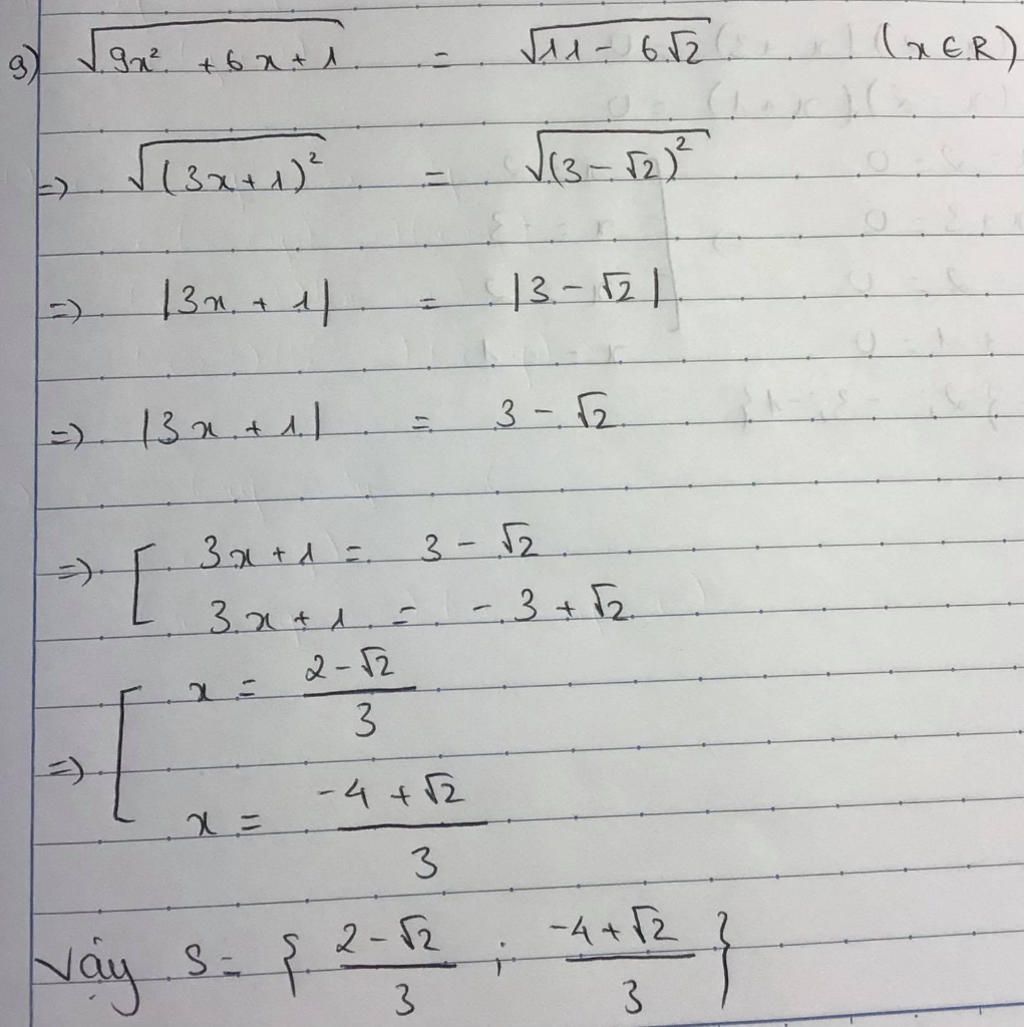 g) √(9x² + 6x + 1) = √(11 - 6√2) (x ∈ R)
=> √((3x + 1)²) = √((3 - √2)²)
=> |3x + 1| = |3 - √2|
=> |3x + 1| = 3 - √2
=> [ 3x + 1 = 3 - √2
3x + 1 = - 3 + √2
=> [ x = (2 - √2)/3
x = (-4 + √2)/3
Vậy S = { (2 - √2)/3 ; (-4 + √2)/3 }